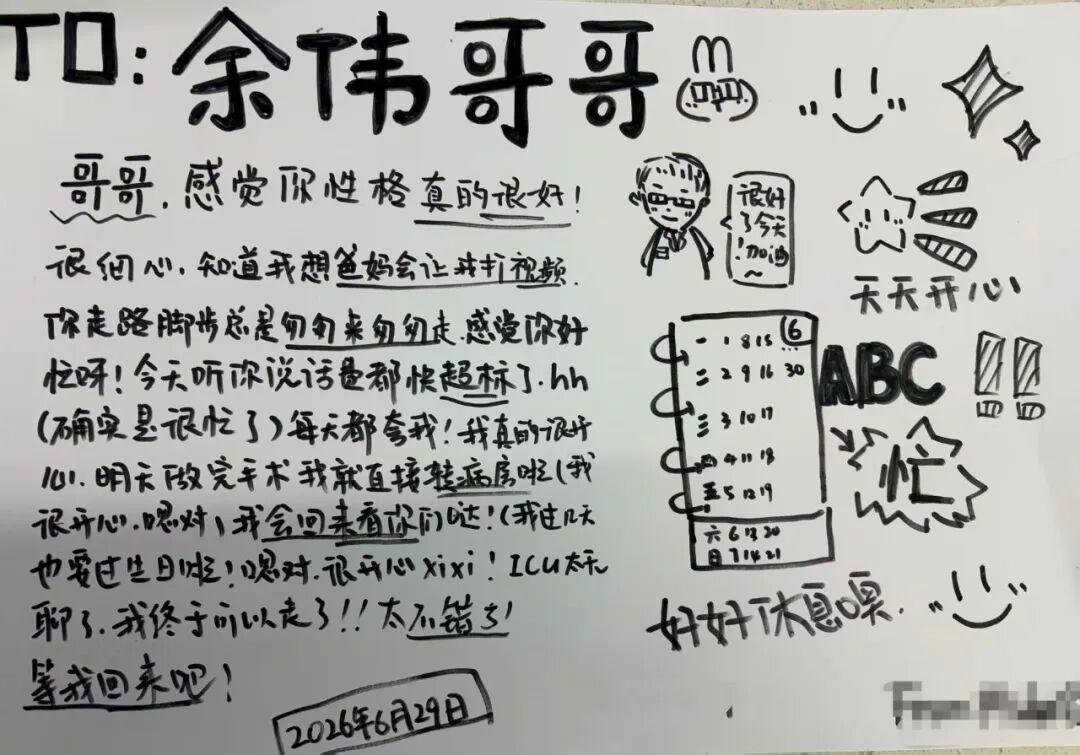 TO: 余伟哥哥
哥哥，感觉你性格真的很好！
很细心，知道我想爸妈会让我打视频
你走路脚步总是匆匆来匆匆走，感觉你好
忙呀！今天听你说话量都快超标了，hh
（确实是很忙了）每天都夸我！我真的很开
心，明天做完手术我就直接转病房啦（我
很开心，嗯对，我会回来看你们哒！（我过几天
也要过生日啦！嗯对，很开心xixi！ICU太无
聊了，我终于可以走了！！太不错了！
等我回来吧！
2026年6月29日
很好
了今天
！加油
~
天天开心
6
一 1 8 15
二 2 9 16 30
三 3 10 17
四 4 11 18
五 5 12 19
六 6 13 20
日 7 14 21
ABC
忙
好好休息嘿.